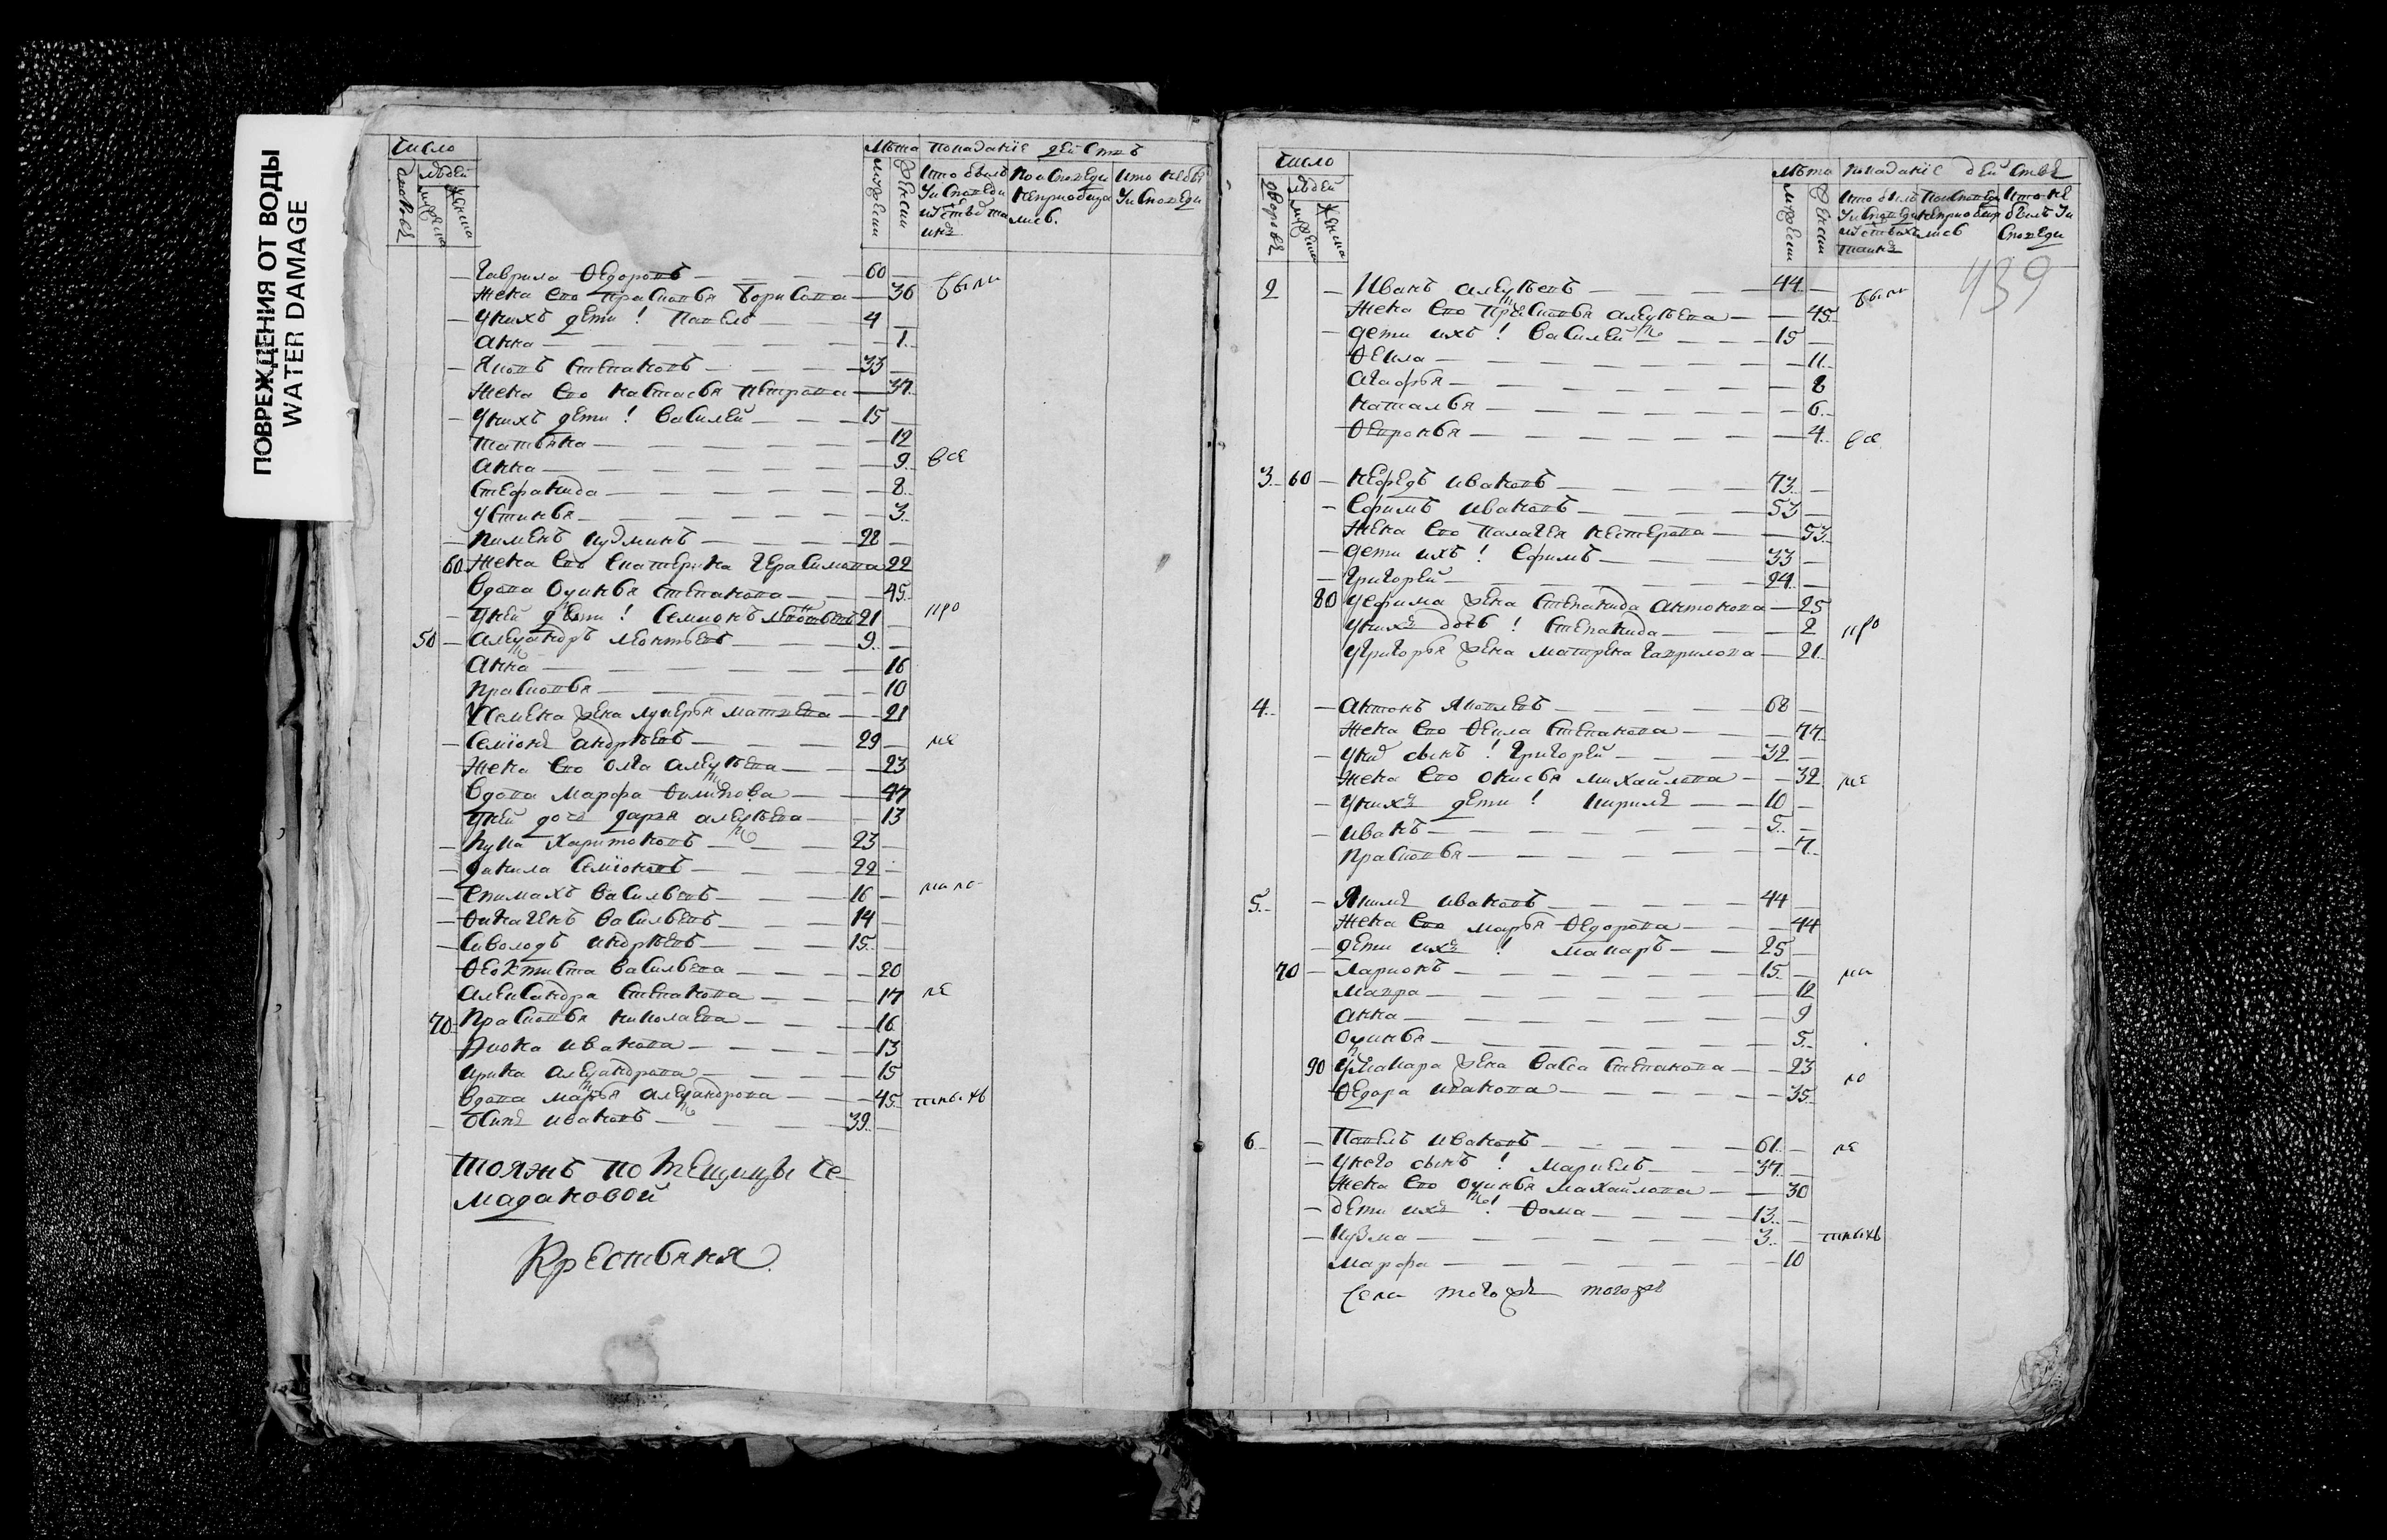 ПОВРЕЖДЕНИЯ ОТ ВОДЫ
WATER DAMAGE
Число
людей
Лѣта Показанїе действ
дворовъ
мужеска
женска
мужески
женски
Кто былъ У исповеди и святыхъ таинъ
По исповеди неприобщались
Кто небылъ У исповеди
— Гаврила Ѳедоровъ — 60 —
Жена его Прасковья Борисова — 36 были
— У нихъ дети! Павелъ — 4 —
Анна — 1
— Яковъ Степановъ — 33 —
Жена его Настасья Петрова — 37
— У нихъ дети! Василей — 15 —
Татьяна — 12
Анна — 9 все
Стефанида — 8
Устинья — 3
— Пименъ Кузминъ — 28 —
60 Жена его Екатерина Герасимова 22
Вдова Ѳуинья Степанова — 45
— У ней дети! Семионъ Леонтьевъ 21 — про
50 — Александръ Леонтьевъ — 9 —
Анна — 16
Прасковья — 10
У Семена жена Лукерья Матвева — 21
— Семїонъ Андрѣевъ — 29 — ме
Жена его Олга Алеѯѣева — 23
Вдова Марфа Филипова — 47
У ней дочь Дарья Алеѯѣева — 13
— Лука Харитоновъ — 23 —
— Данила Семїоновъ — 22 —
— Епимахъ Васильевъ — 16 —
— Васильевъ — 14 —
— Андрѣевъ — 15 —
Ѳеоктиста Васильева — 20
Александра Степанова — 17 не
70 Прасковья Николаева — 16
Иванова — 13
Ирина Алеѯандрова — 15
Вдова Марья Алеѯандрова — 45
— Осипъ Ивановъ — 39 —
Тояжъ помещицы Че-
мадановой
Крестьяня
Число
людей
Лѣта Показанїе действъ
дворовъ
мужеска
женска
мужески
женски
Кто былъ У исповеди и святыхъ таинъ
По исповеди неприобщились
Кто не былъ У исповеди
439
2 — Иванъ Алеѯѣевъ — 44 — были
Жена его Прасковья Алеѯѣева — 45
— Дети ихъ! Василей — 15 —
Ѳекла — 11
Агафья — 8
Наталья — 6
Ѳевронья — 4 все
3 60 — Нефедъ Ивановъ — 73 —
— Ефимъ Ивановъ — 53 —
Жена его Палагея Нестерова — 53
— Дети ихъ! Ефимъ — 33 —
— Григорей — 24 —
80 У Ефима жена Степанида Антонова — 25
У нихъ дочь! Степанида — 2 про
У Григорья жена Матрена Гаврилова — 21
4 — Антонъ Яковлевъ — 68 —
Жена его Ѳекла Степанова — 77
— У нихъ сынъ! Григорей — 32 —
Жена его Михайлова — 32 ме
— У нихъ дети! Кирилъ — 10 —
— Иванъ — 5 —
Прасковья — 7
5 — Якимъ Ивановъ — 44 —
Жена его Марья Ѳедорова — 44
— Дети ихъ! Макаръ — 25 —
70 — Ларионъ — 15 —
Мавра — 12
Анна — 9
— 5
90 У Макара жена Васса Степанова — 23
Ѳедора Иванова — 35
6 — Павелъ Ивановъ — 61 — не
— У него сынъ! Маркелъ — 37 —
Жена его Михайлова — 30
— Дети ихъ! Ѳома — 13 —
— Кузма — 3 —
Марфа — 10
Села тогожъ тогожъ